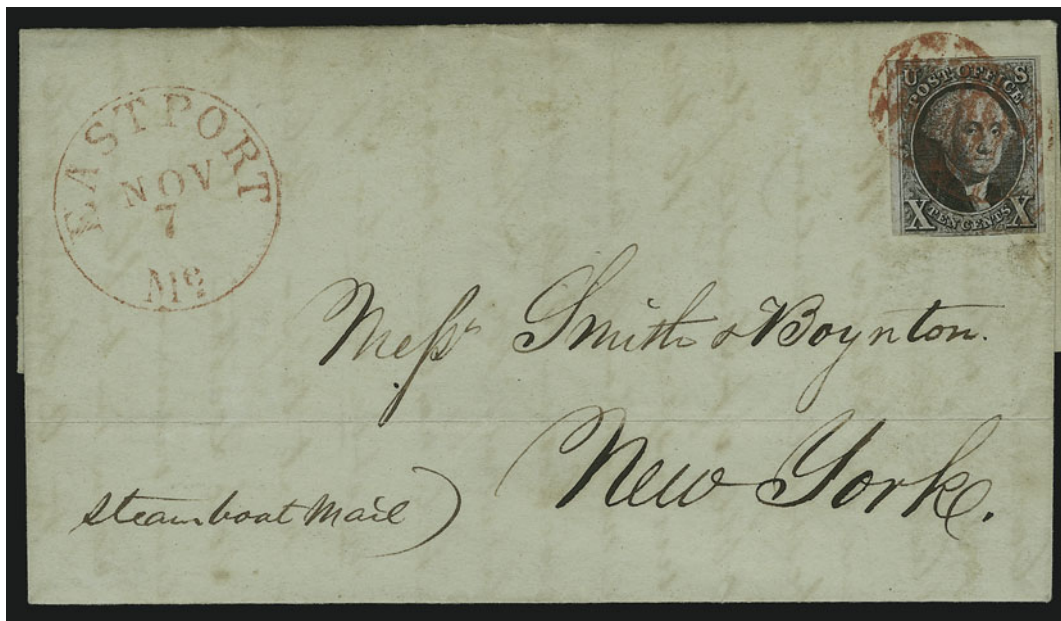 EASTPORT
NOV
7
Me
U S
POST OFFICE
X TEN CENTS X
Messrs Smith & Boynton.
New York.
Steamboat Mail